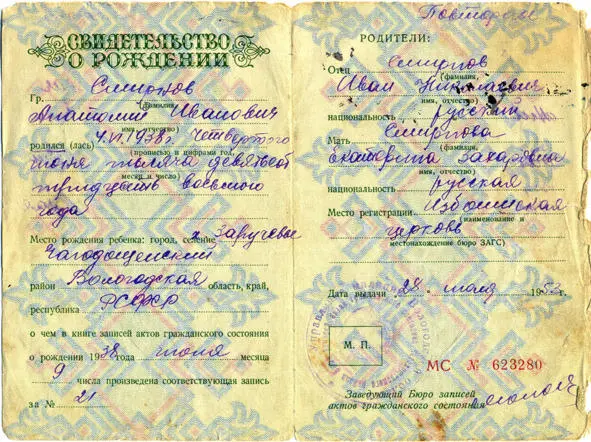 СВИДЕТЕЛЬСТВО
О РОЖДЕНИИ
Гр. Смирнов
(фамилия
Анатолий Иванович
имя, отчество)
родился (лась) 4.VI 1938г Четвертого
(прописью и цифрами год,
июня тысяча девятьсот
месяц и число)
тридцать восьмого
года
Место рождения ребенка: город, селение Заручевье
район Вологодская область, край,
республика РСФСР
о чем в книге записей актов гражданского состояния
о рождении 1938 года июня месяца
9 числа произведена соответствующая запись
за № 21
Повторное
РОДИТЕЛИ:
Отец Смирнов
(фамилия,
Иван Николаевич
имя, отчество)
национальность русский
Мать Смирнова
(фамилия,
Екатерина Захаровна
имя, отчество)
национальность русская
Место регистрации
(наименование и
церковь
местонахождение бюро ЗАГС)
Дата выдачи 28 июля 195 г.
М. П.
МС № 623280
Заведующий Бюро записей
актов гражданского состояния